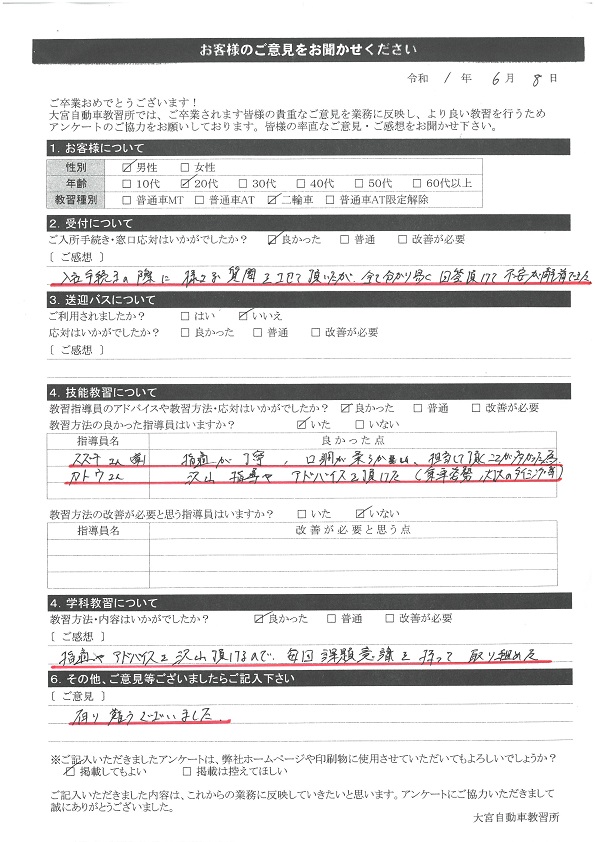 お客様のご意見をお聞かせください
令和 1 年 6 月 8 日
ご卒業おめでとうございます！
大宮自動車教習所では、ご卒業されます皆様の貴重なご意見を業務に反映し、より良い教習を行うため
アンケートのご協力をお願いしております。皆様の率直なご意見・ご感想をお聞かせ下さい。
1. お客様について
性別 ☑男性 □女性
年齢 □10代 ☑20代 □30代 □40代 □50代 □60代以上
教習種別 □普通車MT □普通車AT ☑二輪車 □普通車AT限定解除
2. 受付について
ご入所手続き・窓口応対はいかがでしたか？ ☑良かった □普通 □改善が必要
〔ご感想〕
入校手続きの際に 様々な 質問をさせて頂いたが、全て分かり易く 回答頂けて 不安が解消できた
3. 送迎バスについて
ご利用されましたか？ □はい ☑いいえ
応対はいかがでしたか？ □良かった □普通 □改善が必要
〔ご感想〕
4. 技能教習について
教習指導員のアドバイスや教習方法・応対はいかがでしたか？ ☑良かった □普通 □改善が必要
教習方法の良かった指導員はいますか？ ☑いた □いない
指導員名 良かった点
スズキさん 指摘が丁寧、口調が柔らか 担当して頂くことが多かった為
カトウさん 沢山 指導や アドバイスを頂けた (乗車姿勢、
教習方法の改善が必要と思う指導員はいますか？ □いた ☑いない
指導員名 改善が必要と思う点
4. 学科教習について
教習方法・内容はいかがでしたか？ ☑良かった □普通 □改善が必要
〔ご感想〕
指摘や アドバイスを 沢山 頂けるので、毎回 課題意識を 持って 取り組めた
6. その他、ご意見等ございましたらご記入下さい
〔ご意見〕
有り難うございました。
※ご記入いただきましたアンケートは、弊社ホームページや印刷物に使用させていただいてもよろしいでしょうか？
☑掲載してもよい □掲載は控えてほしい
ご記入いただきました内容は、これからの業務に反映していきたいと思います。アンケートにご協力いただきまして
誠にありがとうございました。
大宮自動車教習所